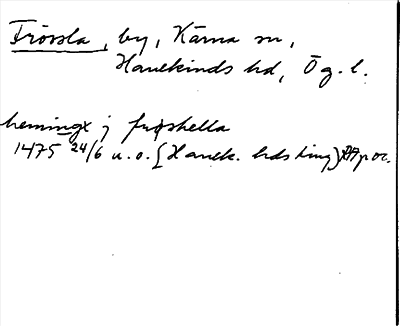 Frössla, by, Kärna sn,
Hanekinds hd, Ög. l.
hemingx j frøshella
1475 24/6 u.o. (Hanek. hds ting) RAp or.